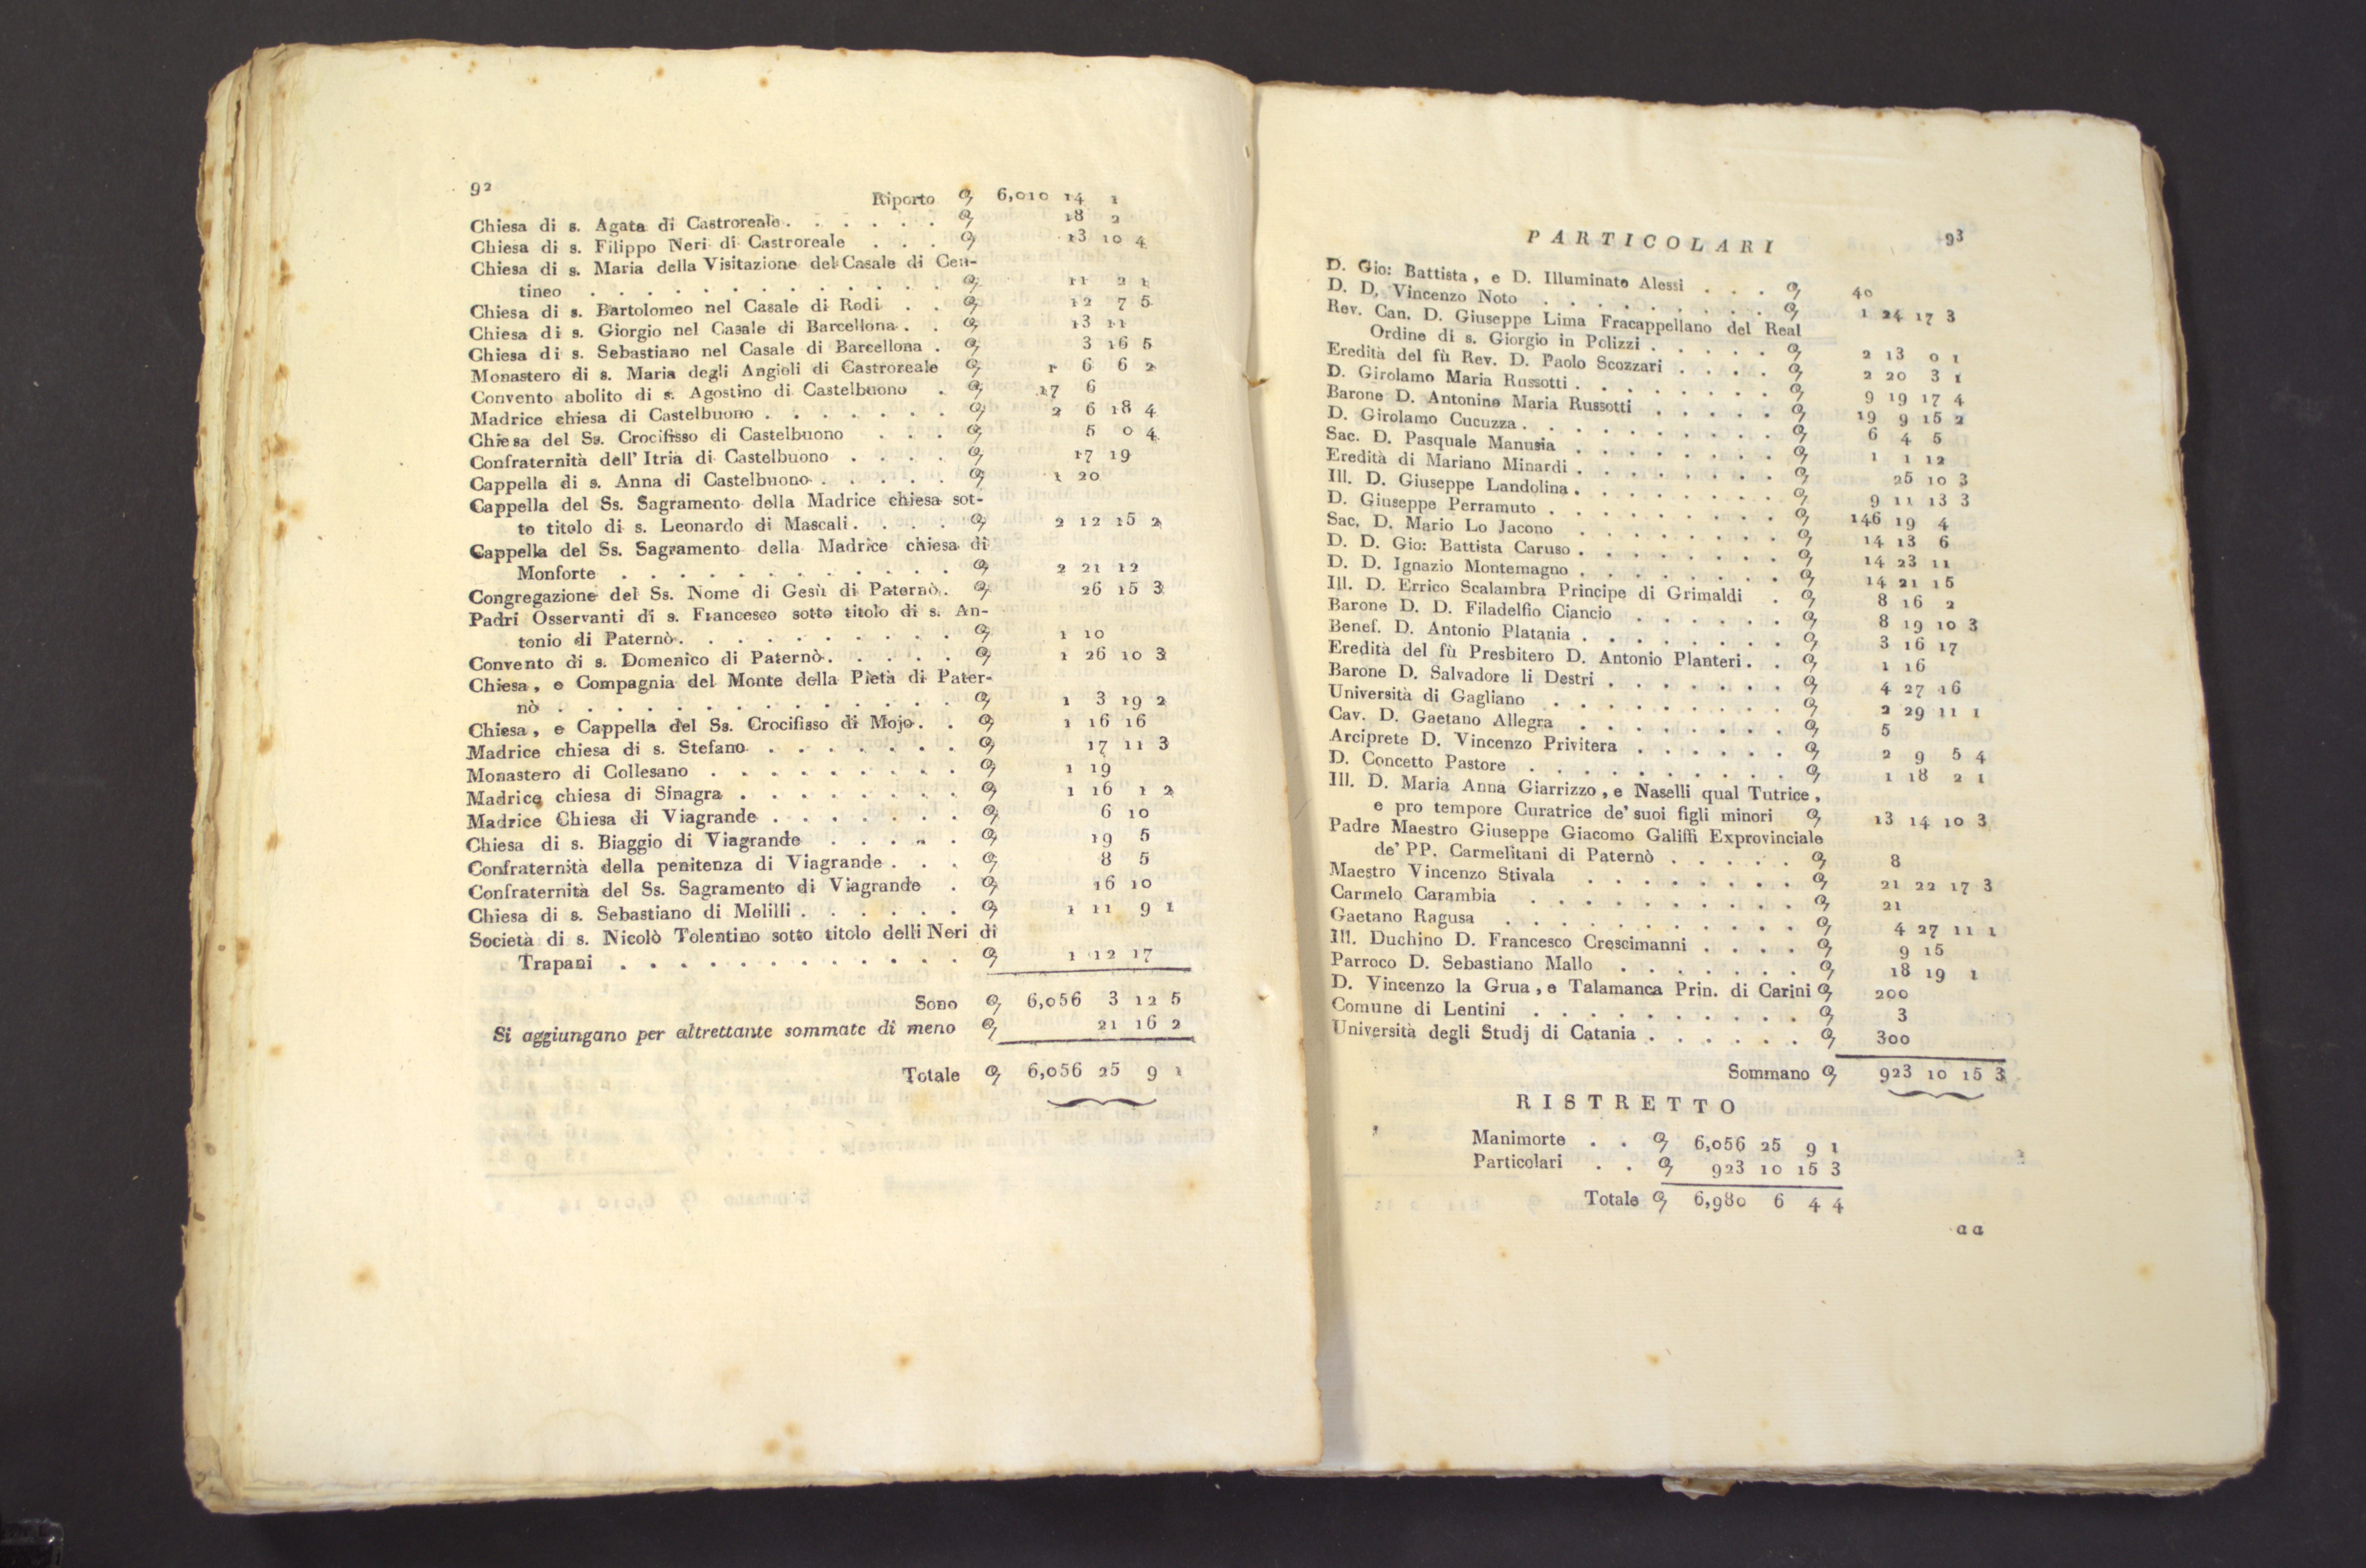 92
Riporto 6,010 14 1
Chiesa di s. Agata di Castroreale . . . . . . 18 2
Chiesa di s. Filippo Neri di Castroreale . . . 13 10 4
Chiesa di s. Maria della Visitazione del Casale di Cen-
tineo . . . . . . . . . . . . . 11 2 1
Chiesa di s. Bartolomeo nel Casale di Rodi . . 12 7 5
Chiesa di s. Giorgio nel Casale di Barcellona . . 13 11
Chiesa di s. Sebastiano nel Casale di Barcellona . 3 16 5
Monastero di s. Maria degli Angioli di Castroreale 1 6 6 2
Convento abolito di s. Agostino di Castelbuono . 17 6
Madrice chiesa di Castelbuono . . . . . . . 2 6 18 4
Chiesa del Ss. Crocifisso di Castelbuono . . . 5 0 4
Confraternità dell' Itria di Castelbuono . . . . 17 19
Cappella di s. Anna di Castelbuono . . . . . 1 20
Cappella del Ss. Sagramento della Madrice chiesa sot-
to titolo di s. Leonardo di Mascali . . . . 2 12 15 2
Cappella del Ss. Sagramento della Madrice chiesa di
Monforte . . . . . . . . . . . . 2 21 12
Congregazione del Ss. Nome di Gesù di Paternò . 26 15 3
Padri Osservanti di s. Francesco sotto titolo di s. An-
tonio di Paternò . . . . . . . . . . 1 10
Convento di s. Domenico di Paternò . . . . . 1 26 10 3
Chiesa, e Compagnia del Monte della Pietà di Pater-
nò . . . . . . . . . . . . . . 1 3 19 2
Chiesa, e Cappella del Ss. Crocifisso di Mojo . . 1 16 16
Madrice chiesa di s. Stefano . . . . . . . 17 11 3
Monastero di Collesano . . . . . . . . . 1 19
Madrice chiesa di Sinagra . . . . . . . . 1 16 1 2
Madrice Chiesa di Viagrande . . . . . . . 6 10
Chiesa di s. Biaggio di Viagrande . . . . . 19 5
Confraternità della penitenza di Viagrande . . . 8 5
Confraternità del Ss. Sagramento di Viagrande . 16 10
Chiesa di s. Sebastiano di Melilli . . . . . . 1 11 9 1
Società di s. Nicolò Tolentino sotto titolo delli Neri di
Trapani . . . . . . . . . . . . 1 12 17
Sono 6,056 3 12 5
Si aggiungano per altrettante sommate di meno 21 16 2
Totale 6,056 25 9 1
93
PARTICOLARI
D. Gio: Battista, e D. Illuminato Alessi . . . 40
D. D. Vincenzo Noto . . . . . . . . 1 24 17 3
Rev. Can. D. Giuseppe Lima Fracappellano del Real
Ordine di s. Giorgio in Polizzi . . . . . 2 13 0 1
Eredità del fù Rev. D. Paolo Scozzari . . . . 2 20 3 1
D. Girolamo Maria Russotti . . . . . . . . 9 19 17 4
Barone D. Antonino Maria Russotti . . . . . 19 9 15 2
D. Girolamo Cucuzza . . . . . . . . . . 6 4 5
Sac. D. Pasquale Manusia . . . . . . . . 1 1 12
Eredità di Mariano Minardi . . . . . . . . 25 10 3
Ill. D. Giuseppe Landolina . . . . . . . . 9 11 13 3
D. Giuseppe Perramuto . . . . . . . . . 146 19 4
Sac. D. Mario Lo Jacono . . . . . . . . 14 13 6
D. D. Gio: Battista Caruso . . . . . . . . 14 23 11
D. D. Ignazio Montemagno . . . . . . . . 14 21 15
Ill. D. Errico Scalambra Principe di Grimaldi . 8 16 2
Barone D. D. Filadelfio Ciancio . . . . . . 8 19 10 3
Benef. D. Antonio Platania . . . . . . . . 3 16 17
Eredità del fù Presbitero D. Antonio Planteri . . 1 16
Barone D. Salvadore li Destri . . . . . . . 4 27 16
Università di Gagliano . . . . . . . . . 2 29 11 1
Cav. D. Gaetano Allegra . . . . . . . . 5
Arciprete D. Vincenzo Privitera . . . . . . 2 9 5 4
D. Concetto Pastore . . . . . . . . . . 1 18 2 1
Ill. D. Maria Anna Giarrizzo, e Naselli qual Tutrice,
e pro tempore Curatrice de' suoi figli minori 13 14 10 3
Padre Maestro Giuseppe Giacomo Galiffi Exprovinciale
de' PP. Carmelitani di Paternò . . . . . 8
Maestro Vincenzo Stivala . . . . . . . . 21 22 17 3
Carmelo Carambia . . . . . . . . . . 21
Gaetano Ragusa . . . . . . . . . . . 4 27 11 1
Ill. Duchino D. Francesco Crescimanni . . . . 9 15
Parroco D. Sebastiano Mallo . . . . . . . 18 19 1
D. Vincenzo la Grua, e Talamanca Prin. di Carini 200
Comune di Lentini . . . . . . . . . . 3
Università degli Studj di Catania . . . . . . 300
Sommano 923 10 15 3
RISTRETTO
Manimorte . . 6,056 25 9 1
Particolari . . 923 10 15 3
Totale 6,980 6 4 4
aa